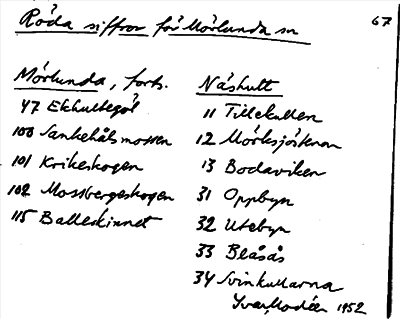 67
Röda siffror för Mörlunda sn
Mörlunda, forts.
47 Ekhultegöl
100 Sankehålsmossen
101 Krikeskogen
102 Mossbergeskogen
115 Balleskinnet
Näshult
11 Tillekullen
12 Mörksjöskruv
13 Bodaviken
31 Oppbyn
32 Utebyn
33 Blåsås
34 Svinkullarna
Ivar Modéer 1952